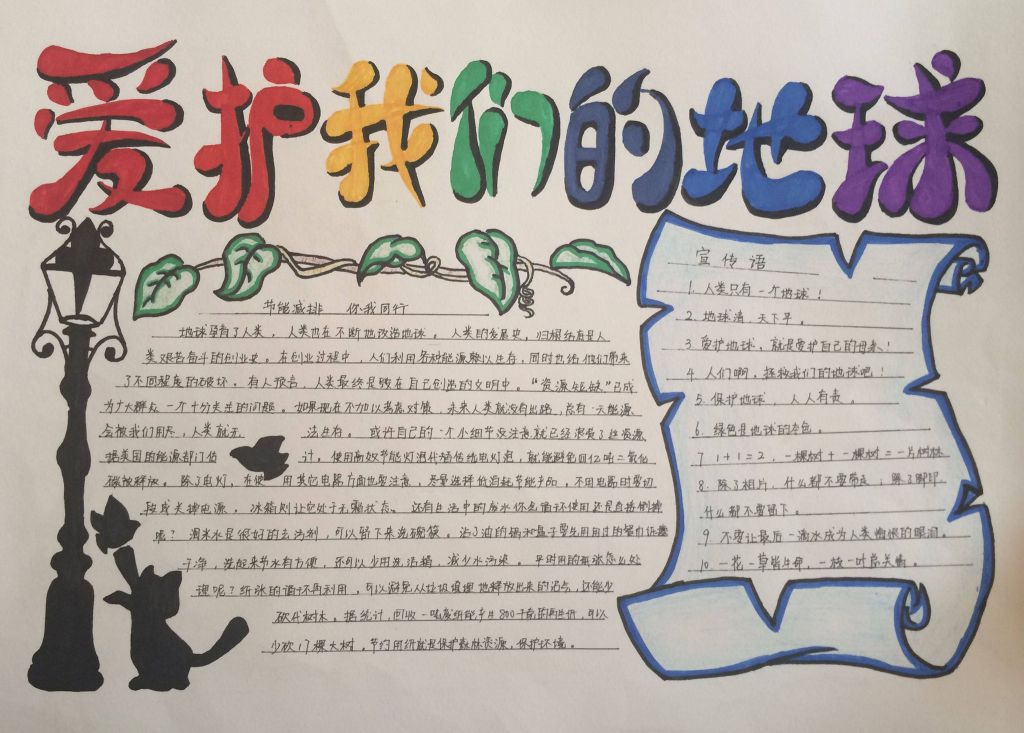 爱护我们的地球
节能减排 你我同行
地球孕育了人类，人类也在不断地改造地球。人类的发展史，归根结底是人
类艰苦奋斗的创业史。在创业过程中，人们利用各种能源赖以生存，同时也给他们带来
了不同程度的破坏。有人预言，人类最终是毁在自己创造的文明中。“资源短缺”已成
为广大群众一个十分关注的问题。如果现在不加以考虑对策，未来人类就没有出路，总有一天能源
会被我们用尽，人类就无法生存。或许自己的一个小细节没注意就已经浪费了些资源
据美国的能源部门估计，使用高效节能灯泡代替传统电灯泡，就能避免四亿吨二氧化
碳被释放。除了电灯，在使用其它电器方面也要注意，尽量选择低消耗节能产品，不用电器时要切
换成关掉电源，冰箱则让它处于无霜状态。还有生活中的废水你是循环使用还是直接倒掉
呢？淘米水是很好的去污剂，可以留下来洗碗筷。沾了油的锅和盘子要先用用过的餐巾纸擦
干净，洗起来节水有方便，还可以少用洗洁精，减少水污染。平时用的纸张怎么处
理呢？纸张的循环再利用，可以避免从垃圾填埋地释放出来的沼气，还能少
砍伐树木。据统计，回收一吨废纸能产生800千克的再生纸，可以
少砍17棵大树。节约用纸就是保护森林资源，保护环境。
宣传语
1. 人类只有一个地球！
2. 地球清，天下平。
3. 爱护地球，就是爱护自己的母亲！
4. 人们啊，拯救我们的地球吧！
5. 保护地球，人人有责。
6. 绿色是地球的本色。
7 1+1=2，一棵树+一棵树=一片树林
8. 除了相片，什么都不要带走；除了脚印，
什么都不要留下。
9 不要让最后一滴水成为人类悔恨的眼泪。
10. 一花一草皆生命，一枝一叶总关情。